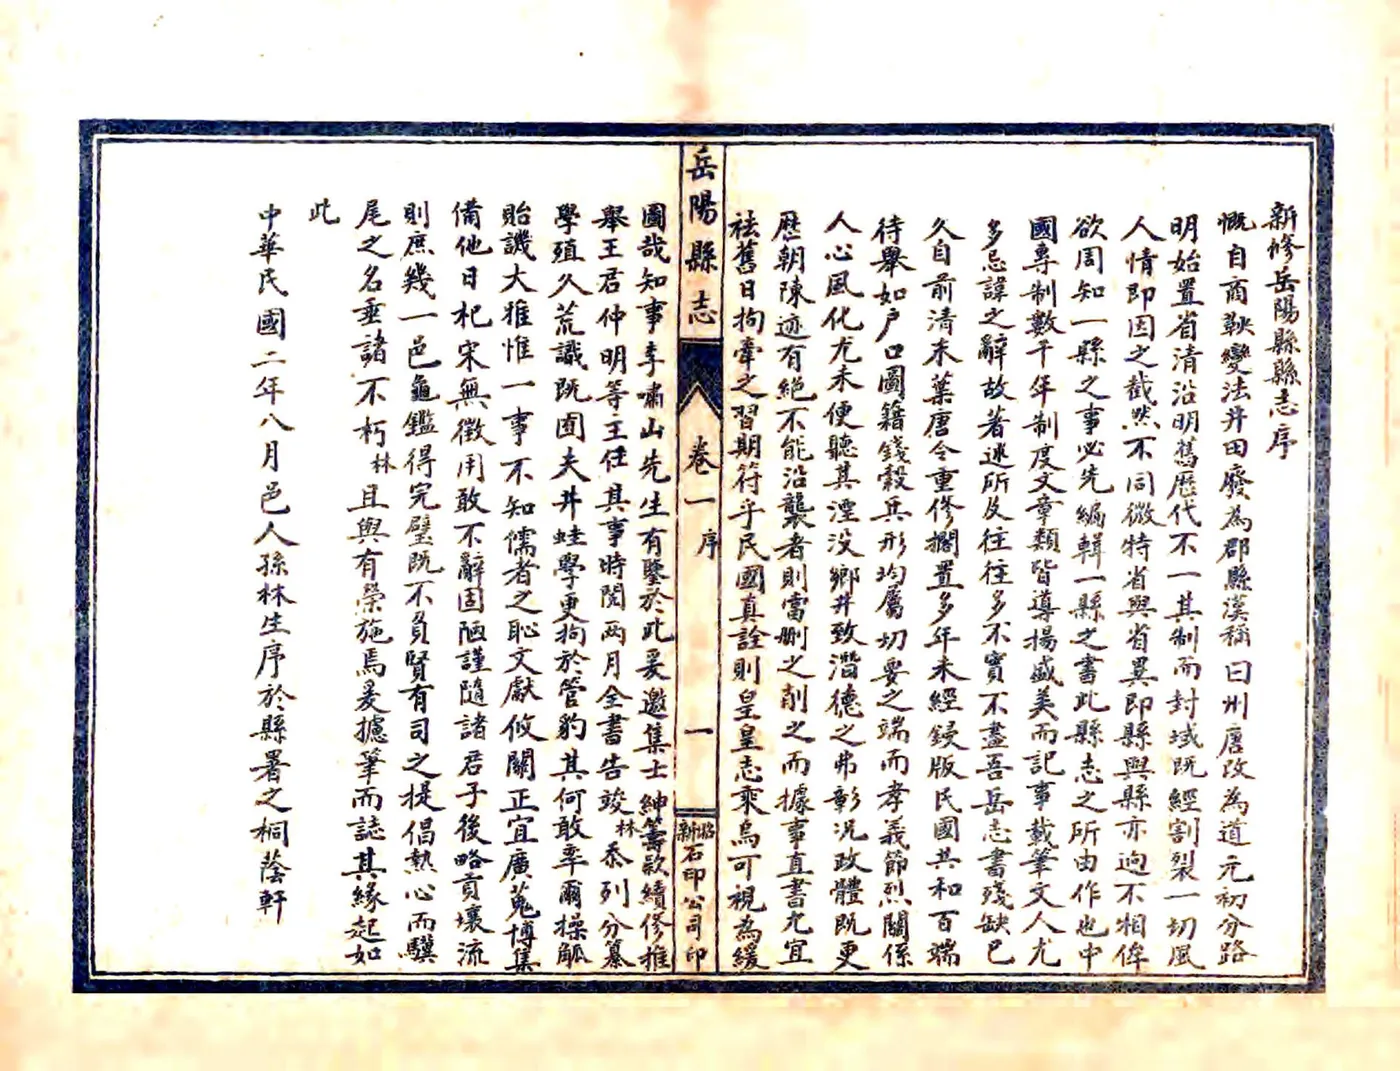 新修岳陽縣縣志序
慨自商鞅變法井田廢為郡縣漢稱曰州唐改為道元初分路
明始置省清沿明舊歷代不一其制而封域既經割裂一切風
人情即因之截然不同微特省與省異即縣與縣亦迥不相侔
欲周知一縣之事必先編輯一縣之書此縣志之所由作也中
國專制數千年制度文章類皆導揚盛美而記事載筆文人尤
多忌諱之辭故著述所及往往多不實不盡吾岳志書殘缺已
久自前清末葉唐令重修擱置多年未經鋟版民國共和百端
待舉如户口圖籍錢穀兵形均屬切要之端而孝義節烈關係
人心風化尤未便聽其湮没鄉井致潛德之弗彰况政體既更
歷朝陳迹有絕不能沿襲者則當删之削之而據事直書尤宜
袪舊日拘牽之習期符乎民國真詮則皇皇志乘烏可視為緩
岳陽縣志
卷一
序
一
新石印公司印
圖哉知事李嘯山先生有鑒於此爰邀集士紳籌欵續修推
舉王君仲明等主任其事時閲兩月全書告竣林忝列分纂
學殖久荒識既囿夫井蛙學更拘於管豹其何敢率爾操觚
貽譏大雅惟一事不知儒者之恥文獻攸關正宜廣蒐博集
備他日杞宋無徵用敢不辭固陋謹隨諸君子後略貢壤流
則庶幾一邑龜鑑得完璧既不負賢有司之提倡熱心而驥
尾之名垂諸不朽林且與有榮施焉爰攄筆而誌其緣起如
此
中華民國二年八月邑人孫林生序於縣署之桐蔭軒